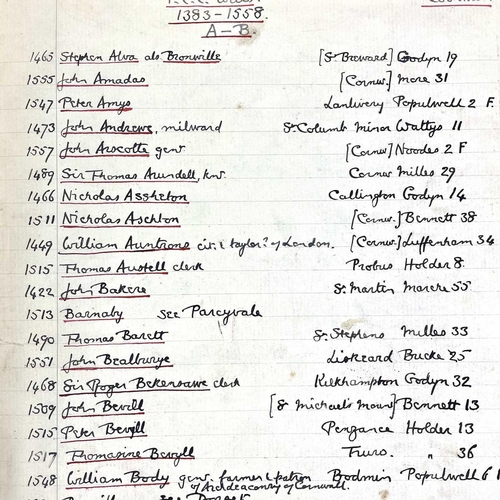 1383-1558.
A-B.
1465 Stephen Alva als. Bronville [S. Breward] Godyn 19
1555 John Amadas [Cornw.] More 31
1547 Peter Amys Lanlivery Populwell 2 F.
1473 John Andrewe, milward S. Columb Minor Wattys 11
1557 John Arscotte gent. [Cornw.] Noodes 2 F
1489 Sir Thomas Arundell, knt. Cornw. Milles 29
1466 Nicholas Assheton Callington Godyn 14
1511 Nicholas Aschton [Cornw.] Bennett 38
1449 William Auntrons cit. & taylor? of London. [Cornw.] Luffenham 34
1515 Thomas Austell clerk Probus Holder 8.
1422 John Bakere S. Martin Marche 55
1513 Barnaby see Parcyvale
1490 Thomas Barett S. Stephens Milles 33
1551 John Bealburye Liskeard Bucke 25
1468 Sir Roger Bekensawe clerk Kilkhampton Godyn 32
1509 John Bevill [S. Michael's Mount] Bennett 13
1515 Peter Bevyll Penzance Holder 13
1517 Thomasine Bevyll Truro. " 36
1548 William Body gent. farmer & patron of Archdeaconry of Cornwall. Bodmin Populwell 6